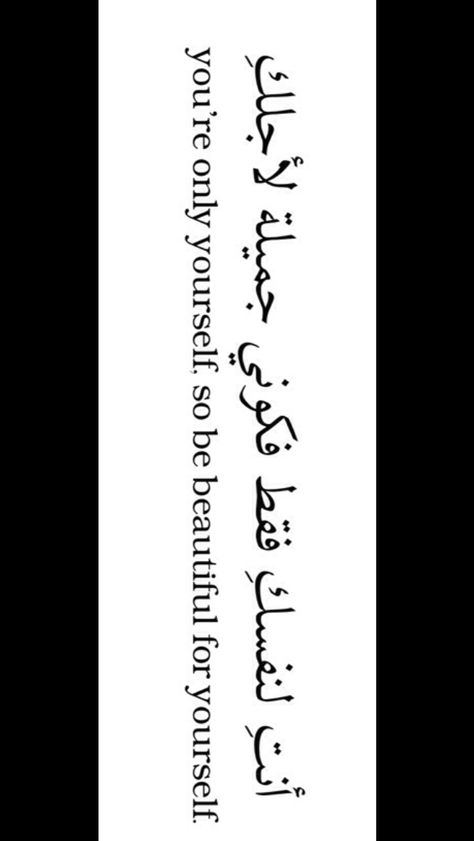 أنتِ لنفسكِ فقط فكوني جميلة لأجلكِ
you're only yourself, so be beautiful for yourself.